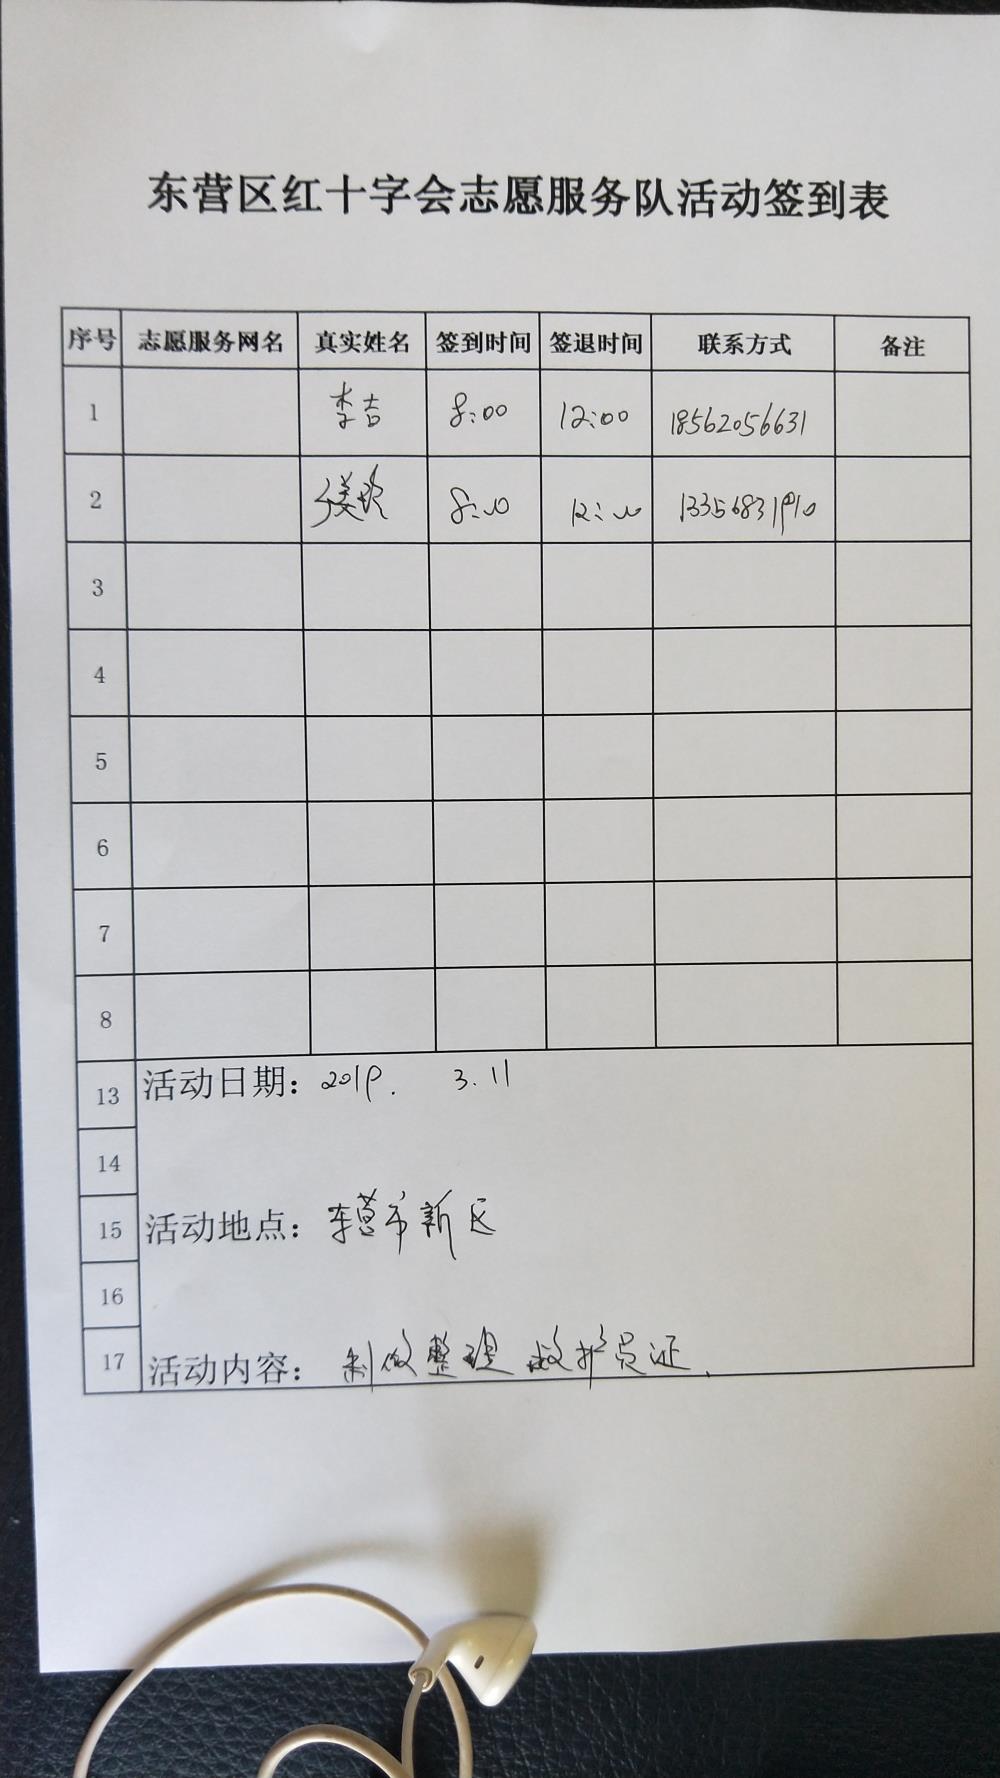 东营区红十字会志愿服务队活动签到表
序号 志愿服务网名 真实姓名 签到时间 签退时间 联系方式 备注
1 李吉 8:00 12:00 18562056631
2 8:00 12:00 13356831910
3
4
5
6
7
8
13 活动日期: 2019. 3.11
14
15 活动地点: 东营市新区
16
17 活动内容: 制做整理救护员证.